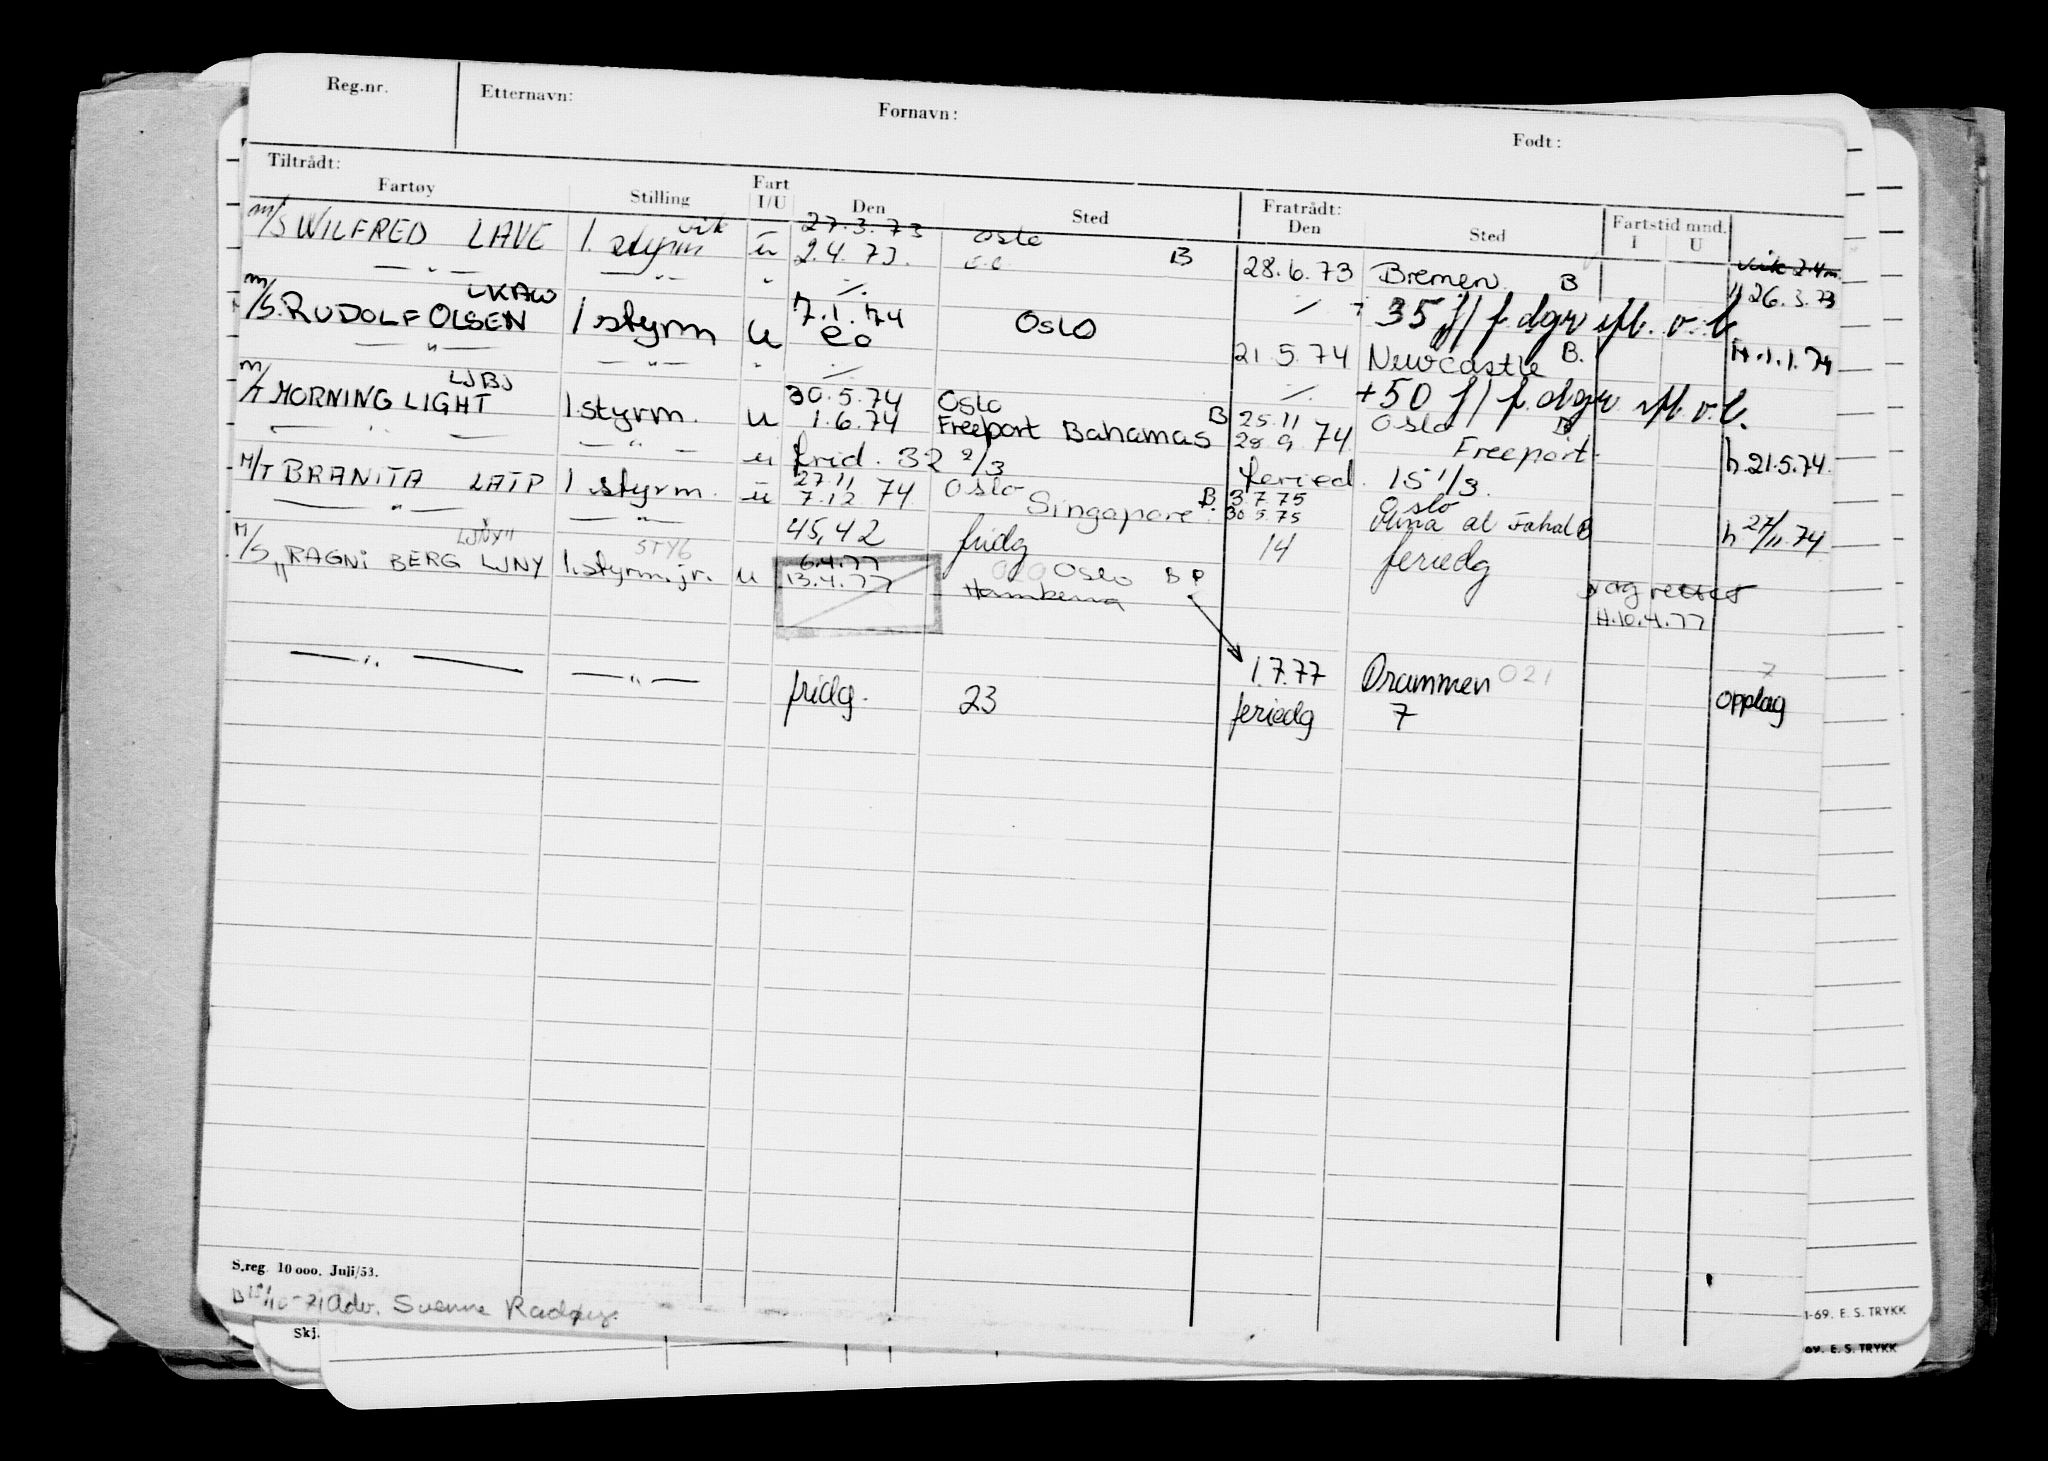 Reg.nr. Etternavn: Fornavn: Født:
Tiltrådt: Fratrådt:
Fartøy Stilling Fart I/U Den Sted Den Sted Fartstid mnd. I U
vik 27.3.73 Oslo
M/S WILFRED LAVE 1. styrm u 2.4.73. B 28.6.73 Bremen. B vik 2.4
— " — — " — " ./. ./. + 35 f/f.dgr H 26.3.73
LKAW
M/S. RUDOLF OLSEN 1 styrm u 7.1.74 eo Oslo
— " — — " — " ./. 21.5.74 Newcastle B. H.1.1.74
LJBJ ./. +50 f/f.dgr
M/T MORNING LIGHT 1 styrm. u 30.5.74 Oslo B 25.11 Oslo B
1.6.74 Freeport Bahamas 28.9.74. Freeport.
— " — — " — u frid. 32 2/3 feried. 15 1/3. h 21.5.74.
M/T BRANITA LATP 1 styrm. u 27.11 Oslo B. 3.7.75 Oslo
7.12 74 Singapore. 30.5.75 Mina al Fahal B
— " — — " — 45,42 fridg 14 feriedg h 27/11.74
LJNY" STY6
M/S „RAGNI BERG LJNY 1. styrm. jr. u 6.4.77 Oslo B P
13.4.77 og rettet
H.10.4.77
— " — — " — 1.7.77 Drammen 021 7
fridg. 23 feriedg 7 opplag
S.reg. 10 000. Juli/53.
Adv.
1-69. E. S. TRYKK
Skj.
ov. E. S. TRYKK